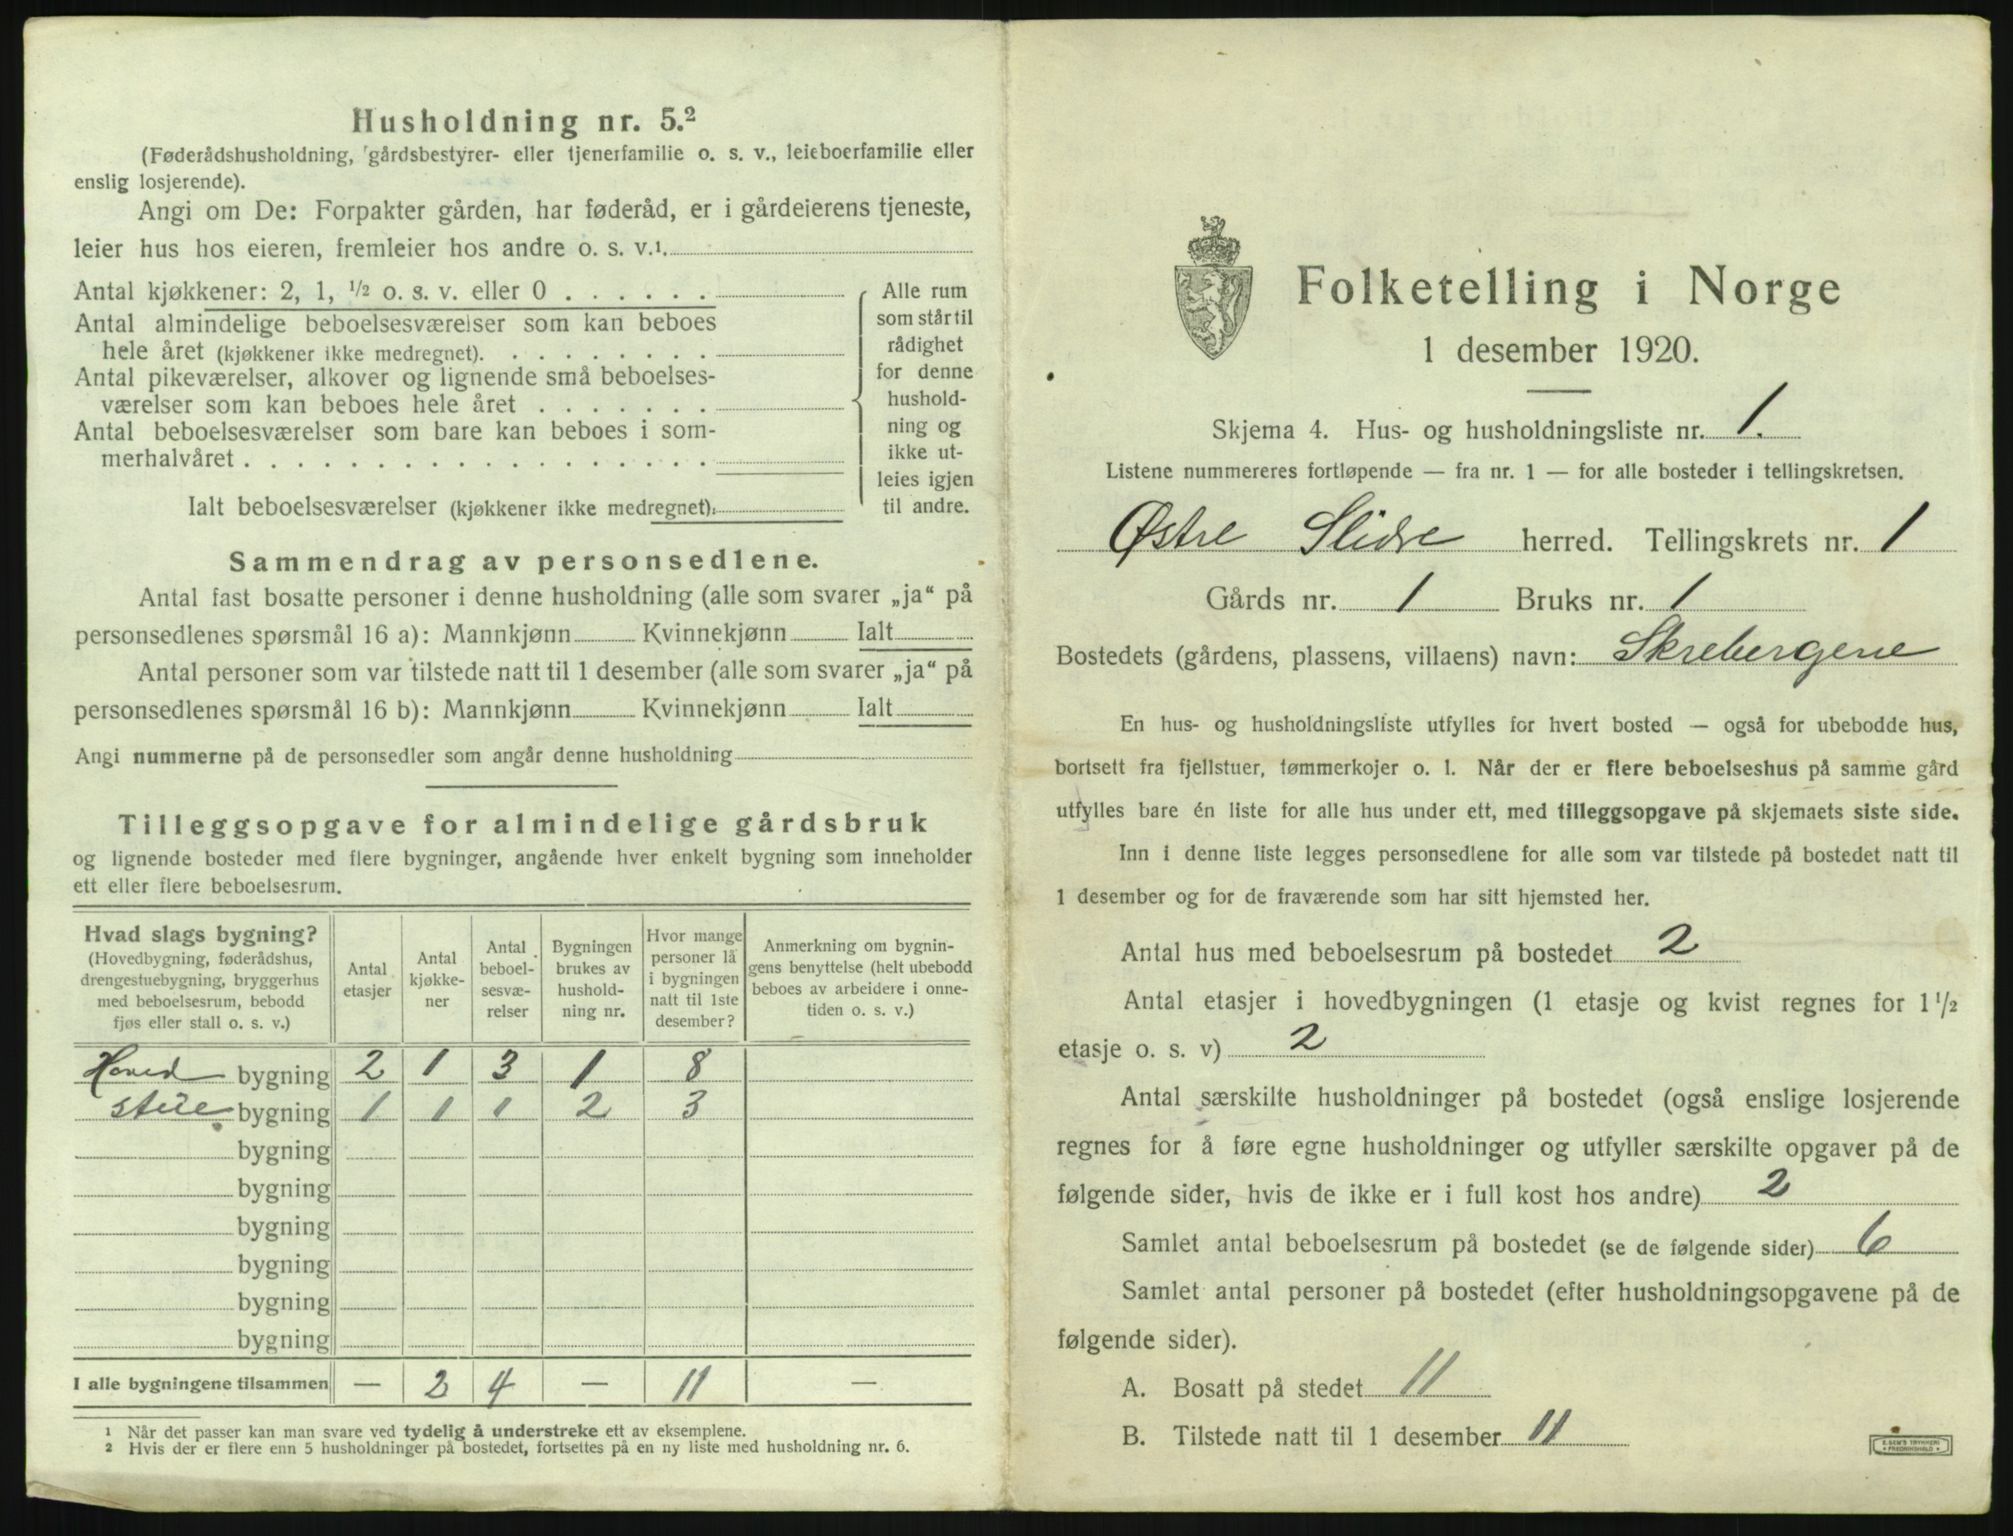 Husholdning nr. 5.²
(Føderådshusholdning, gårdsbestyrer- eller tjenerfamilie o. s. v., leieboerfamilie eller
enslig losjerende).
Angi om De: Forpakter gården, har føderåd, er i gårdeierens tjeneste,
leier hus hos eieren, fremleier hos andre o. s. v.¹.
Antal kjøkkener: 2, 1, ¹/₂ o. s. v. eller 0 . . . . . .
Antal almindelige beboelsesværelser som kan beboes
hele året (kjøkkener ikke medregnet). . . . . . . . .
Antal pikeværelser, alkover og lignende små beboelses-
værelser som kan beboes hele året . . . . . . .
Antal beboelsesværelser som bare kan beboes i som-
merhalvåret . . . . . . . . . . . . . . . . . .
Ialt beboelsesværelser (kjøkkener ikke medregnet):
Alle rum
som står til
rådighet
for denne
hushold-
ning og
ikke ut-
leies igjen
til andre.
Sammendrag av personsedlene.
Antal fast bosatte personer i denne husholdning (alle som svarer „ja“ på
personsedlenes spørsmål 16 a): Mannkjønn Kvinnekjønn Ialt
Antal personer som var tilstede natt til 1 desember (alle som svarer „ja“ på
personsedlenes spørsmål 16 b): Mannkjønn Kvinnekjønn Ialt
Angi nummerne på de personsedler som angår denne husholdning
Tilleggsopgave for almindelige gårdsbruk
og lignende bosteder med flere bygninger, angående hver enkelt bygning som inneholder
ett eller flere beboelsesrum.
Hvad slags bygning?
(Hovedbygning, føderådshus,
drengestuebygning, bryggerhus
med beboelsesrum, bebodd
fjøs eller stall o. s. v.)
Antal
etasjer
Antal
kjøkke-
ner
Antal
beboel-
sesvæ-
relser
Bygningen
brukes av
hushold-
ning nr.
Hvor mange
personer lå
i bygningen
natt til 1ste
desember?
Anmerkning om bygnin-
gens benyttelse (helt ubebodd
beboes av arbeidere i onne-
tiden o. s. v.)
Hoved bygning 2 1 3 1 8
stue bygning 1 1 1 2 3
bygning
bygning
bygning
bygning
bygning
bygning
I alle bygningene tilsammen — 2 4 — 11 —
¹ Når det passer kan man svare ved tydelig å understreke ett av eksemplene.
² Hvis der er flere enn 5 husholdninger på bostedet, fortsettes på en ny liste med husholdning nr. 6.
Folketelling i Norge
1 desember 1920.
Skjema 4. Hus- og husholdningsliste nr. 1.
Listene nummereres fortløpende — fra nr. 1 — for alle bosteder i tellingskretsen.
Østre Slidre herred. Tellingskrets nr. 1
Gårds nr. 1 Bruks nr. 1
Bostedets (gårdens, plassens, villaens) navn: Skrebergene
En hus- og husholdningsliste utfylles for hvert bosted — også for ubebodde hus,
bortsett fra fjellstuer, tømmerkojer o. l. Når der er flere beboelseshus på samme gård
utfylles bare én liste for alle hus under ett, med tilleggsopgave på skjemaets siste side.
Inn i denne liste legges personsedlene for alle som var tilstede på bostedet natt til
1 desember og for de fraværende som har sitt hjemsted her.
Antal hus med beboelsesrum på bostedet 2
Antal etasjer i hovedbygningen (1 etasje og kvist regnes for 1 ¹/₂
etasje o. s. v) 2
Antal særskilte husholdninger på bostedet (også enslige losjerende
regnes for å føre egne husholdninger og utfyller særskilte opgaver på de
følgende sider, hvis de ikke er i full kost hos andre) 2
Samlet antal beboelsesrum på bostedet (se de følgende sider) 6
Samlet antal personer på bostedet (efter husholdningsopgavene på de
følgende sider).
A. Bosatt på stedet 11
B. Tilstede natt til 1 desember 11